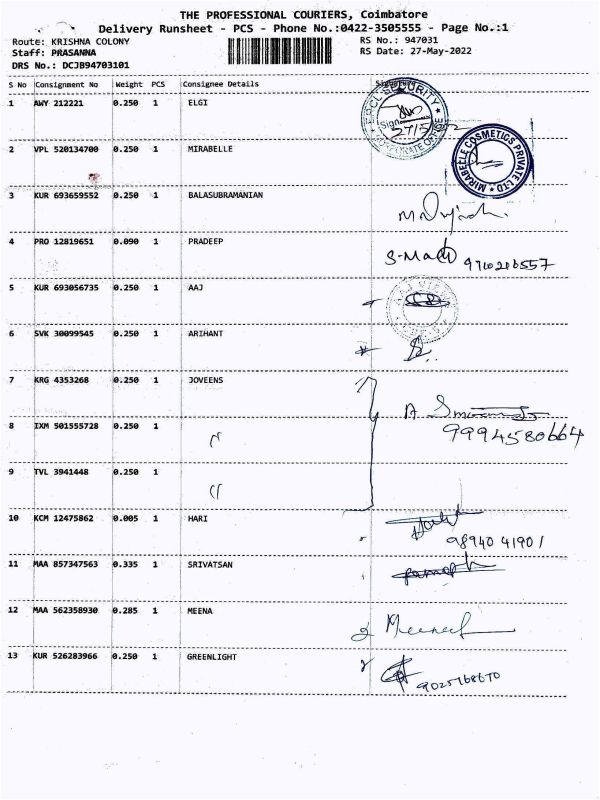 THE PROFESSIONAL COURIERS, Coimbatore
Delivery Runsheet - PCS - Phone No.:0422-3505555 - Page No.:1
Route: KRISHNA COLONY RS No.: 947031
Staff: PRASANNA RS Date: 27-May-2022
DRS No.: DCJB94703101
S No Consignment No Weight PCS Consignee Details Signature
1 AWY 212221 0.250 1 ELGI
2 VPL 520134700 0.250 1 MIRABELLE
MIRABELLE COSMETICS PRIVATE LTD
3 KUR 693659552 0.250 1 BALASUBRAMANIAN
4 PRO 12819651 0.090 1 PRADEEP
9710206557
5 KUR 693056735 0.250 1 AAJ
6 SVK 30099545 0.250 1 ARIHANT
7 KRG 4353268 0.250 1 JOVEENS
8 IXM 501555728 0.250 1 "
9994580664
9 TVL 3941448 0.250 1 "
10 KCM 12475862 0.005 1 HARI
98940 41901
11 MAA 857347563 0.335 1 SRIVATSAN
12 MAA 562358930 0.285 1 MEENA
Meena
13 KUR 526283966 0.250 1 GREENLIGHT
9025768670